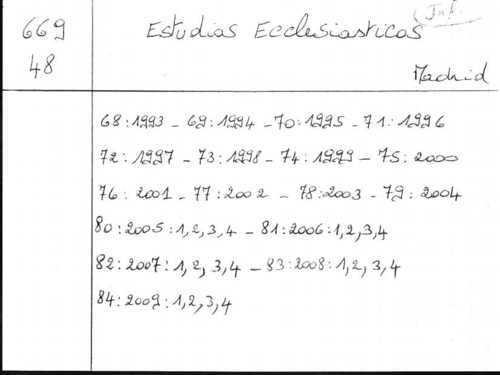 669
48
Estudias Ecclesiasticas
Madrid
68:1993 - 69:1994 - 70:1995 - 71:1996
72:1997 - 73:1998 - 74:1999 - 75:2000
76:2001 - 77:2002 - 78:2003 - 79:2004
80:2005:1,2,3,4 - 81:2006:1,2,3,4
82:2007:1,2,3,4 - 83:2008:1,2,3,4
84:2009:1,2,3,4